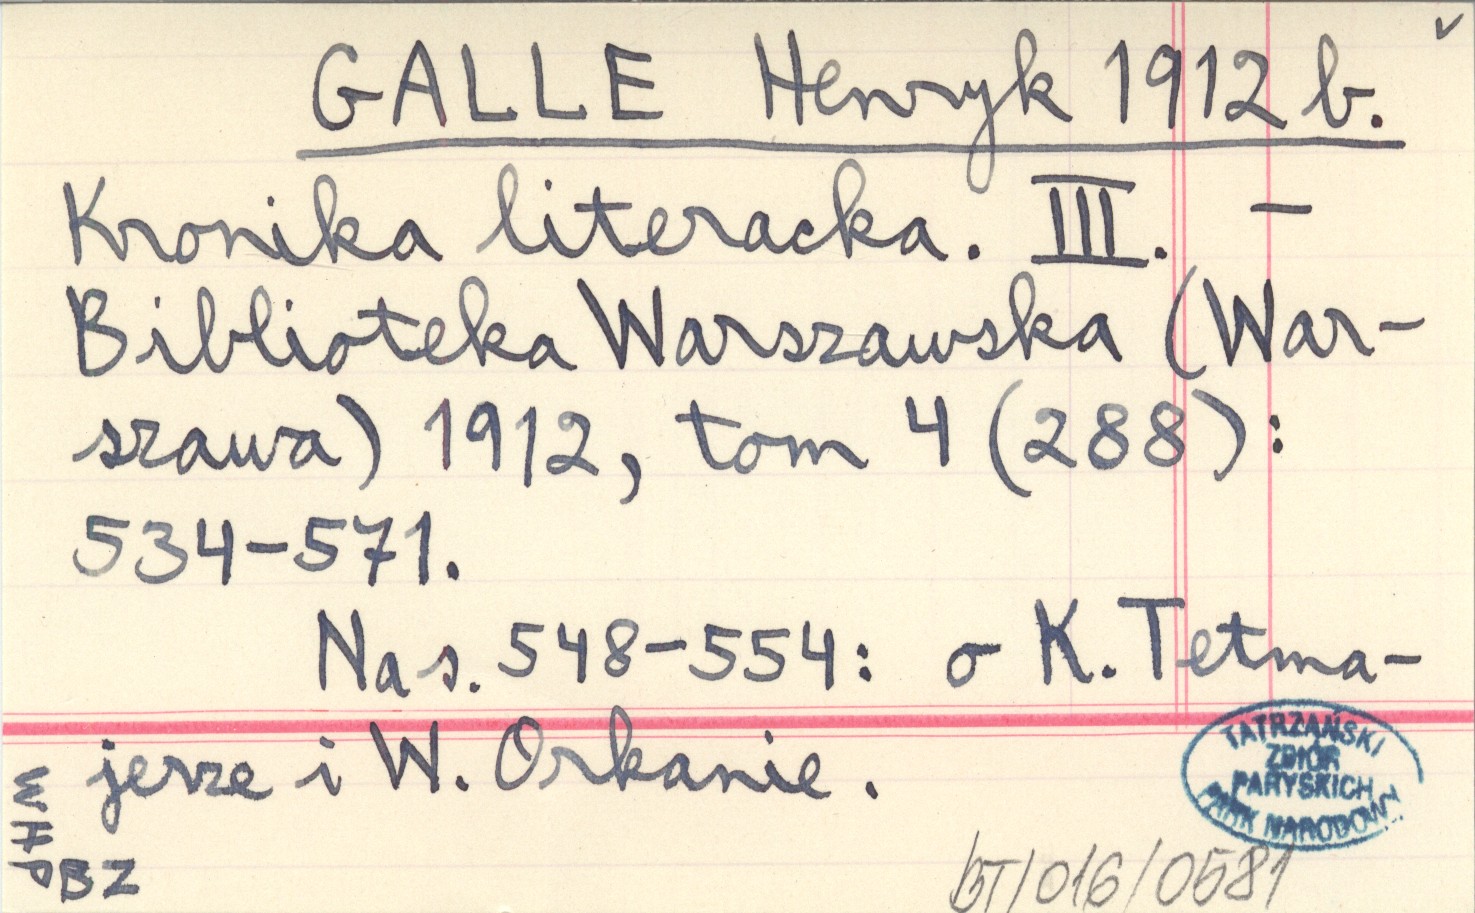 GALLE Henryk 1912 b.
Kronika literacka. III. –
Biblioteka Warszawska (War-
szawa) 1912, tom 4 (288):
534–571.
Na s. 548–554: o K. Tetma-
jerze i W. Orkanie.
WHP
BZ
TATRZAŃSKI
ZBIÓR
PARYSKICH
PARK NARODOWY
bT/016/0581